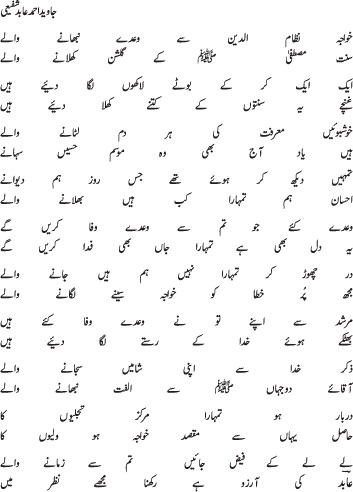 جاوید احمد عابد شفیعی
خواجہ نظام الدین سے وعدے نبھانے والے
سنت مصطفیٰ ﷺ کے گلشن کھلانے والے
ایک ایک کر کے بوٹے لاکھوں لگا دیئے ہیں
غنچے یہ سنتوں کے کتنے کھلا دیئے ہیں
خوشبوئیں معرفت کی ہر دم لٹانے والے
ہیں یاد آج بھی وہ موسم حسیں سہانے
تمہیں دیکھ کر ہوئے تھے جس روز ہم دیوانے
احسان ہم تمہارا کب ہیں بھلانے والے
وعدے کئے جو تم سے وعدے وفا کریں گے
یہ دل بھی ہے تمہارا جاں بھی فدا کریں گے
در چھوڑ کر تمہارا نہیں ہم ہیں جانے والے
مجھ پُر خطا کو خواجہ سینے لگانے والے
مرشد سے اپنے تو نے وعدے وفا کئے ہیں
بھٹکے ہوئے خدا کے رستے لگا دیئے ہیں
ذکر خدا سے اپنی شامیں سجانے والے
آقائے دوجہاں ﷺ سے الفت نبھانے والے
دربار ہو تمہارا مرکز تجلیوں کا
حاصل یہاں سے مقصد خواجہ ہو ولیوں کا
لے لے کے فیض جائیں تم سے زمانے والے
عابد کی آرزو ہے رکھنا مجھے نظر میں